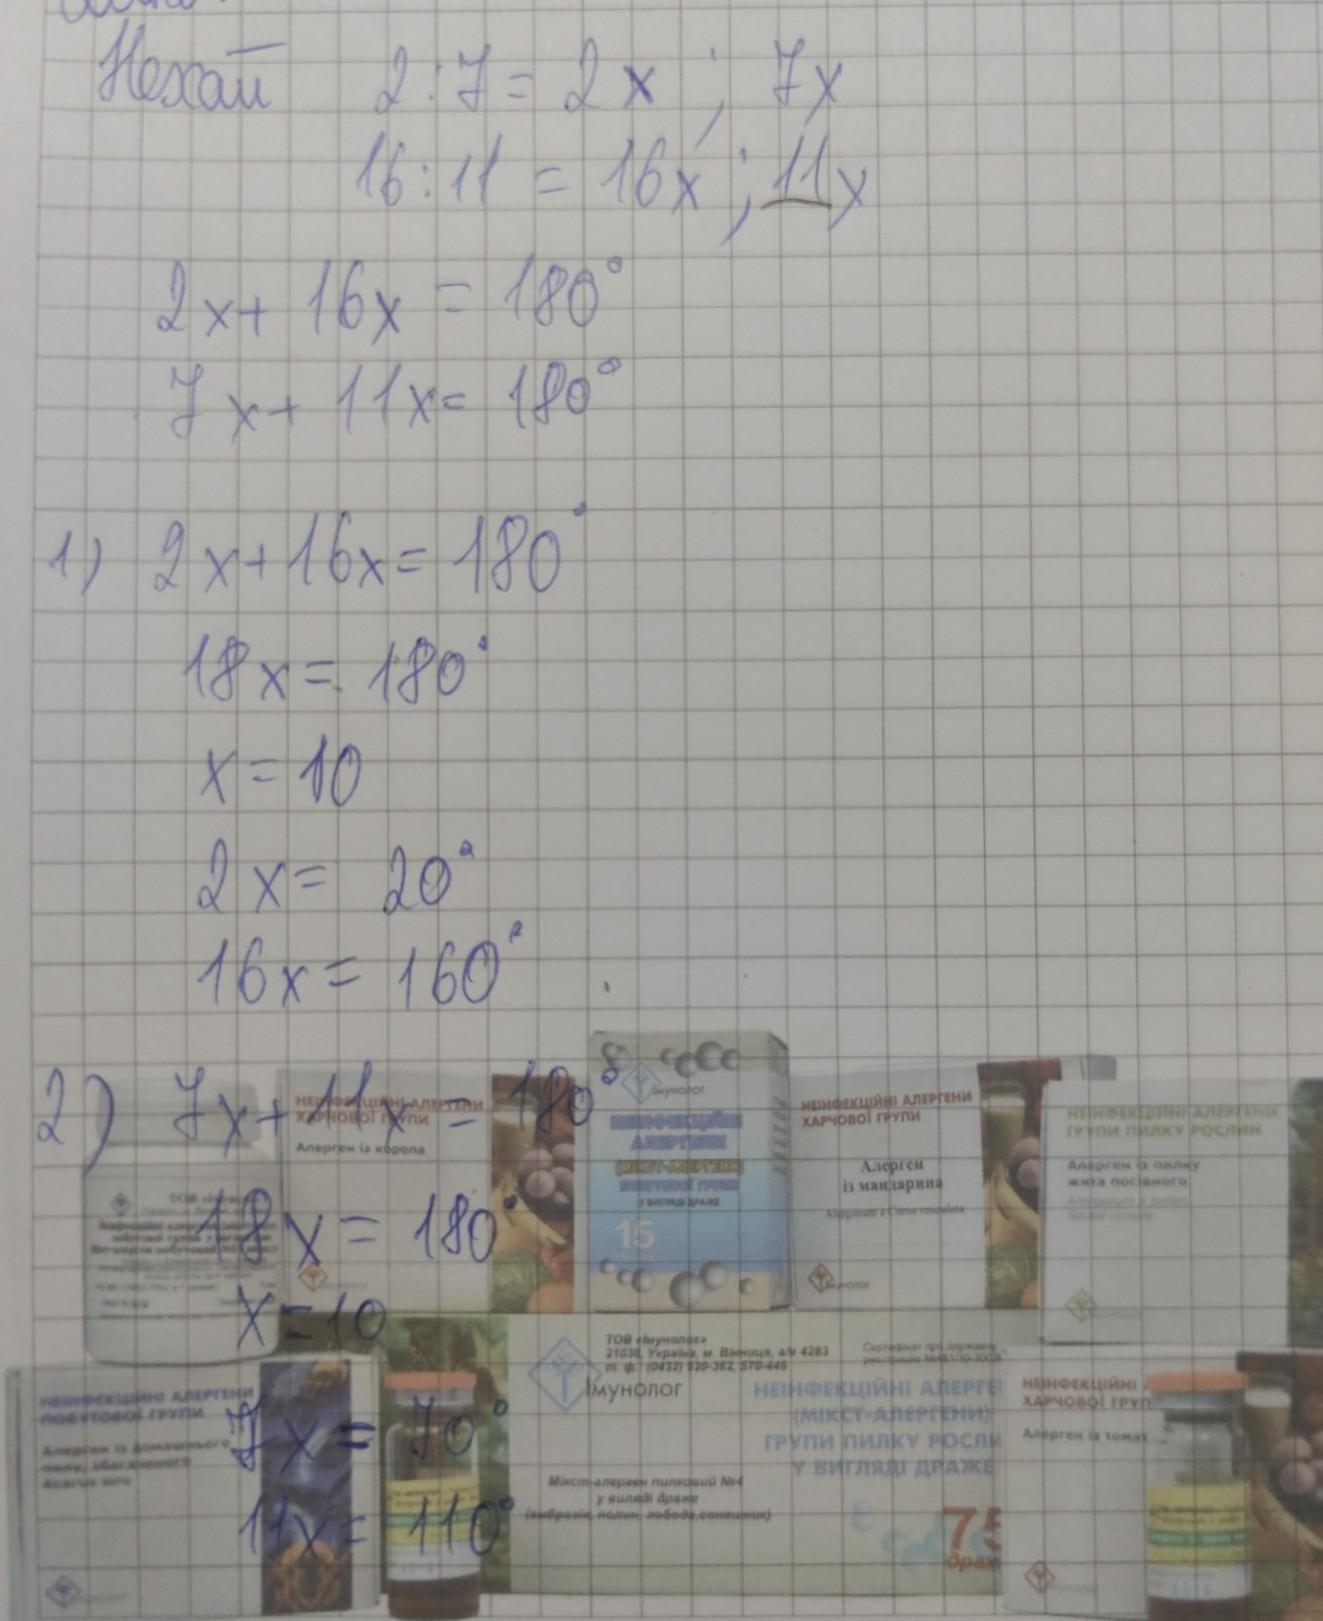 Нехай 2:7 = 2x ; 7x
16:11 = 16x ; 11x
2x + 16x = 180°
7x + 11x = 180°
1) 2x + 16x = 180°
18x = 180°
x = 10
2x = 20°
16x = 160°
2) 7x + 11x = 180°
18x = 180°
x = 10
7x = 70°
11x = 110°
НЕІНФЕКЦІЙНІ АЛЕРГЕНИ
ХАРЧОВОЇ ГРУПИ
Алерген із коропа
Імунолог
НЕІНФЕКЦІЙНІ
АЛЕРГЕНИ
(МІКСТ-АЛЕРГЕНИ)
ПОБУТОВОЇ ГРУПИ
У ВИГЛЯДІ ДРАЖЕ
15
НЕІНФЕКЦІЙНІ АЛЕРГЕНИ
ХАРЧОВОЇ ГРУПИ
Алерген
із мандарина
Імунолог
НЕІНФЕКЦІЙНІ АЛЕРГЕНИ
ГРУПИ ПИЛКУ РОСЛИН
Алерген із пилку
жита посівного
НЕІНФЕКЦІЙНІ АЛЕРГЕНИ
ПОБУТОВОЇ ГРУПИ
Алерген із домашнього
пилу, збагаченого
ТОВ «Імунолог»
21036, Україна, м. Вінниця, а/я 4283
т. ф.: (0432) 520-362, 570-446
Імунолог
НЕІНФЕКЦІЙНІ АЛЕРГЕ
(МІКСТ-АЛЕРГЕНИ)
ГРУПИ ПИЛКУ РОСЛИ
У ВИГЛЯДІ ДРАЖЕ
Мікст-алерген пилковий №4
у вигляді драже
(амброзія, полин, лобода, соняшник)
75
драж
НЕІНФЕКЦІЙНІ
ХАРЧОВОЇ ГРУП
Алерген із томат